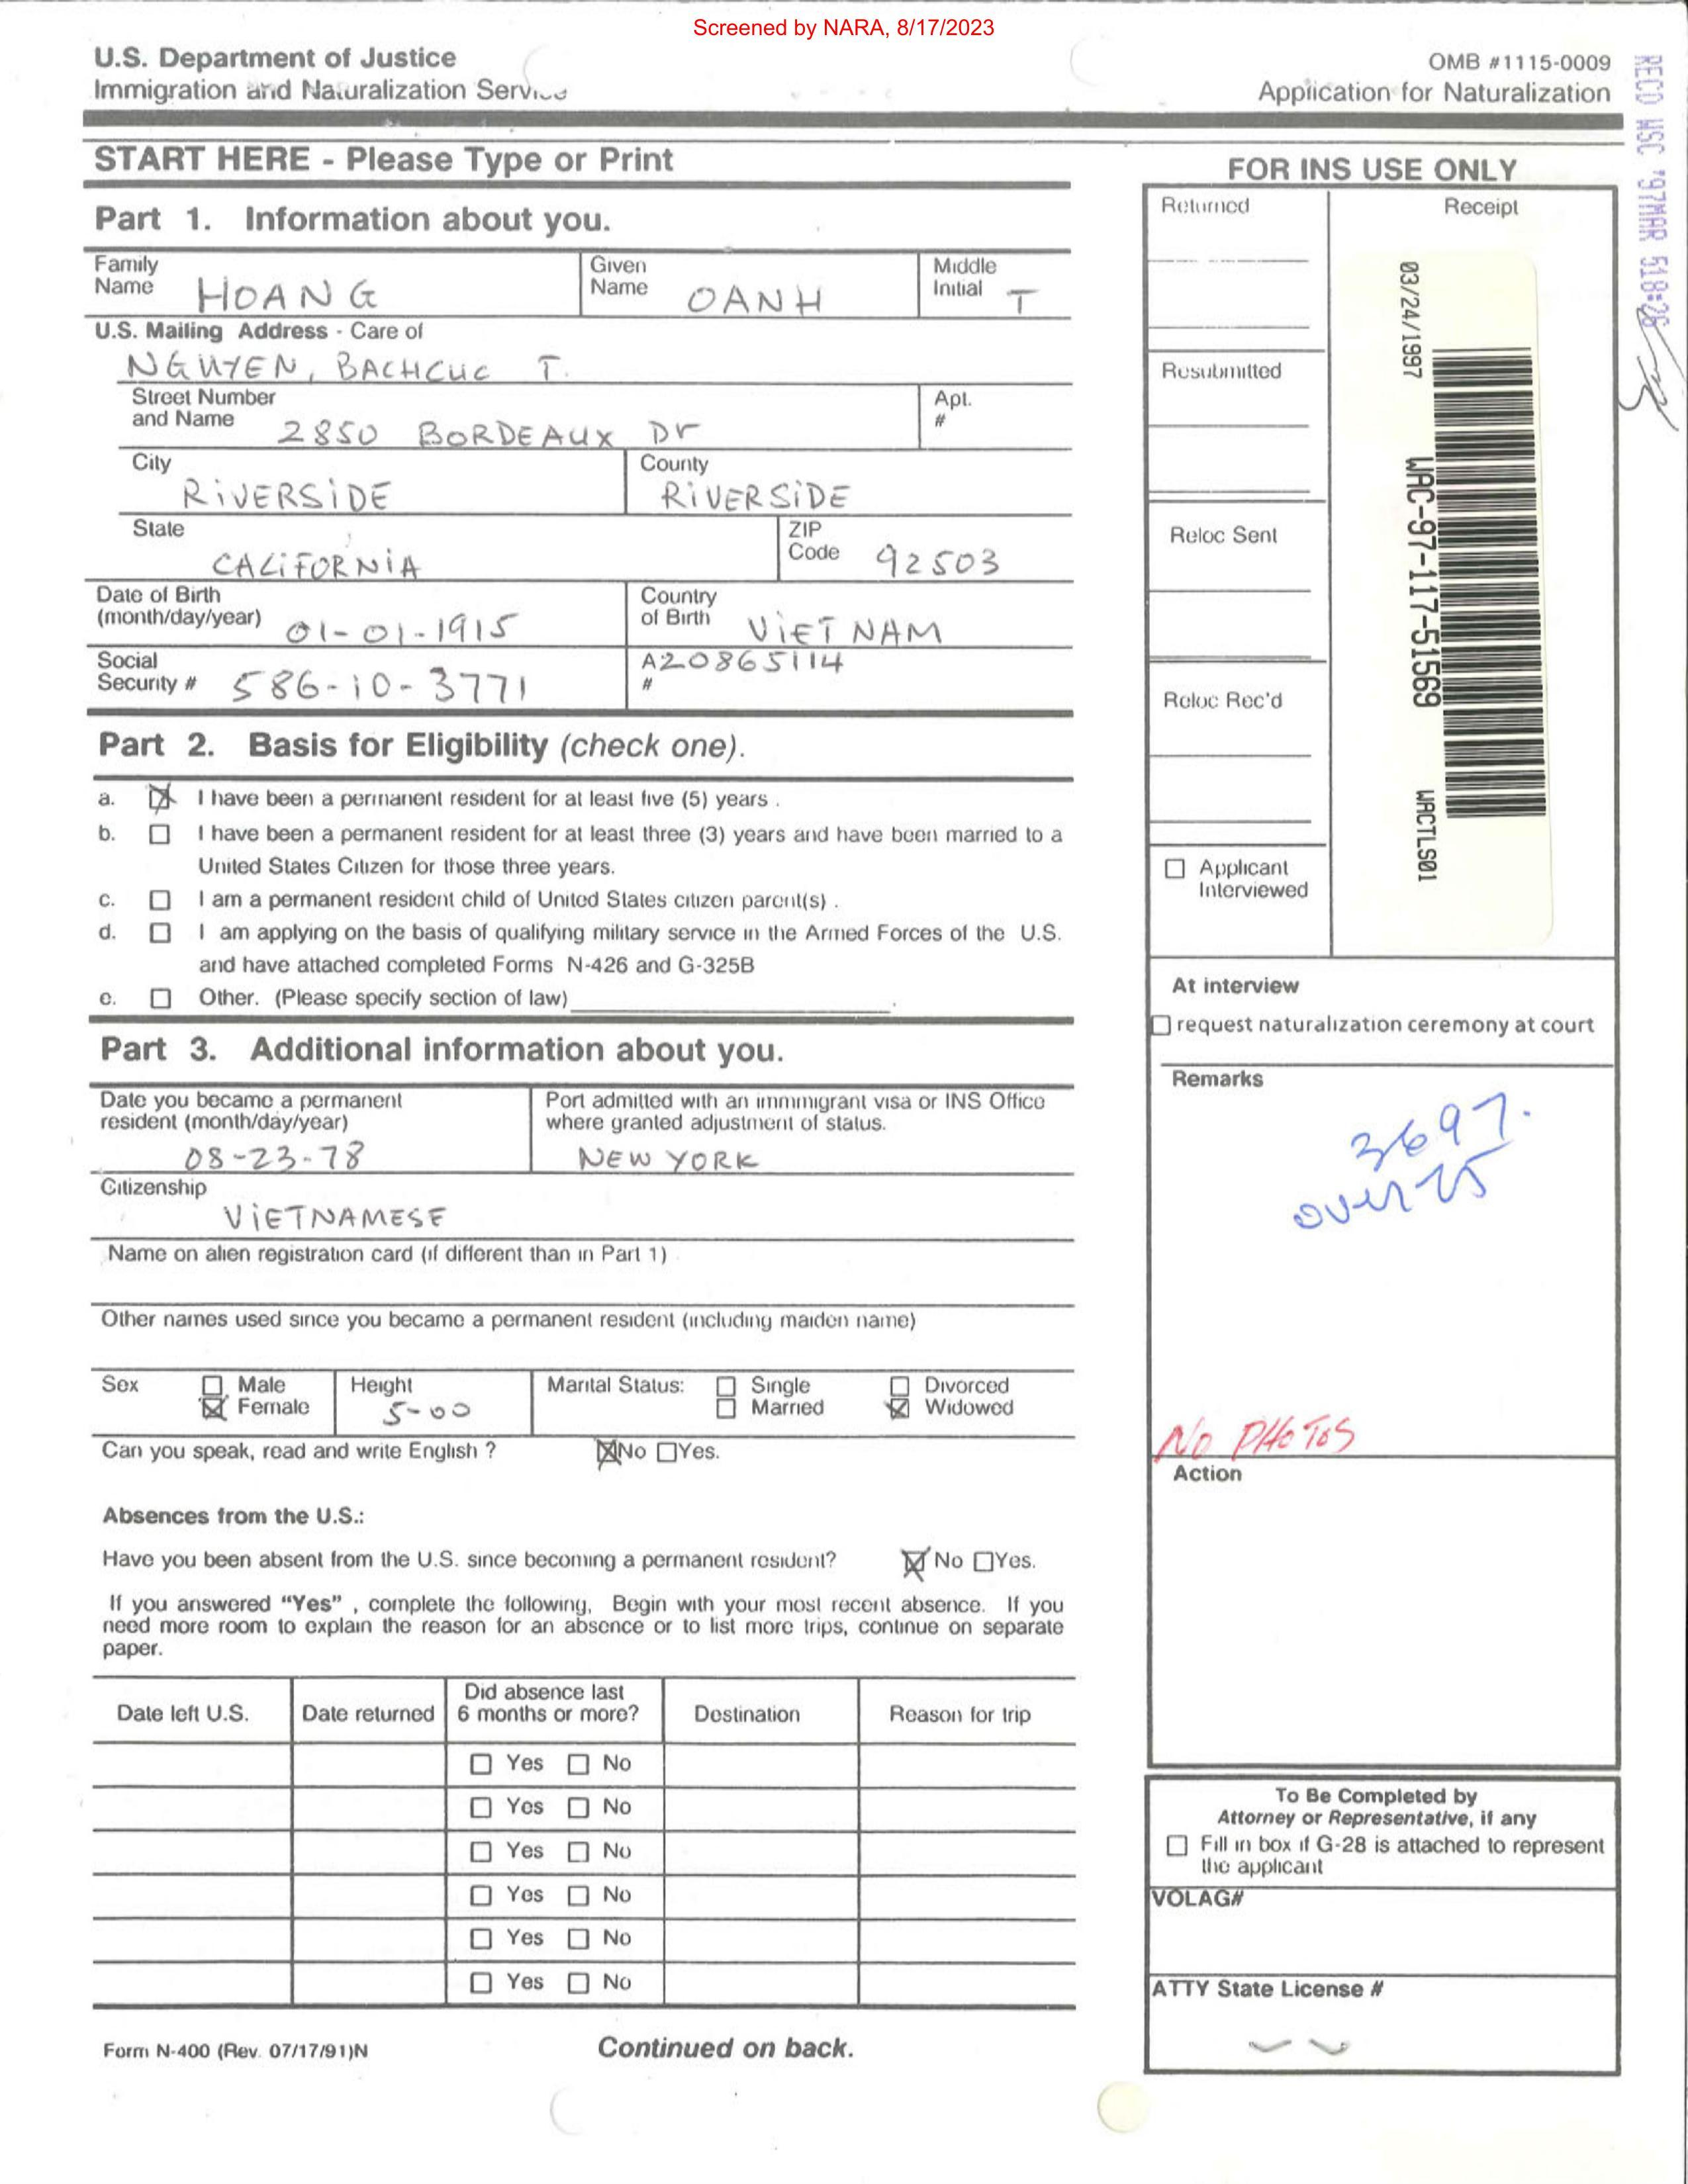 Screened by NARA, 8/17/2023
U.S. Department of Justice
Immigration and Naturalization Service
OMB #1115-0009
Application for Naturalization
RECD WSC '97MAR 5 18:26
START HERE - Please Type or Print
Part 1. Information about you.
Family Name HOANG
Given Name OANH
Middle Initial T
U.S. Mailing Address - Care of
NGUYEN, BACHCUC T.
Street Number and Name 2850 BORDEAUX Dr
Apt. #
City RIVERSIDE
County RIVERSIDE
State CALIFORNIA
ZIP Code 92503
Date of Birth (month/day/year) 01-01-1915
Country of Birth VIET NAM
Social Security # 586-10-3771
A# 20865114
Part 2. Basis for Eligibility (check one).
a. I have been a permanent resident for at least five (5) years .
b. I have been a permanent resident for at least three (3) years and have been married to a
United States Citizen for those three years.
c. I am a permanent resident child of United States citizen parent(s) .
d. I am applying on the basis of qualifying military service in the Armed Forces of the U.S.
and have attached completed Forms N-426 and G-325B
e. Other. (Please specify section of law)
Part 3. Additional information about you.
Date you became a permanent resident (month/day/year)
08-23-78
Port admitted with an immmigrant visa or INS Office
where granted adjustment of status.
NEW YORK
Citizenship
VIETNAMESE
Name on alien registration card (if different than in Part 1)
Other names used since you became a permanent resident (including maiden name)
Sex Male Female
Height 5-00
Marital Status: Single Married Divorced Widowed
Can you speak, read and write English ? No Yes.
Absences from the U.S.:
Have you been absent from the U.S. since becoming a permanent resident? No Yes.
If you answered "Yes" , complete the following, Begin with your most recent absence. If you
need more room to explain the reason for an absence or to list more trips, continue on separate
paper.
Date left U.S. Date returned Did absence last 6 months or more? Destination Reason for trip
Yes No
Yes No
Yes No
Yes No
Yes No
Yes No
Form N-400 (Rev. 07/17/91)N
Continued on back.
FOR INS USE ONLY
Returned
Receipt
03/24/1997
WAC-97-117-51569
WACTLS01
Resubmitted
Reloc Sent
Reloc Rec'd
Applicant
Interviewed
At interview
request naturalization ceremony at court
Remarks
3697.
over 75
No PHOTOS
Action
To Be Completed by
Attorney or Representative, if any
Fill in box if G-28 is attached to represent
the applicant
VOLAG#
ATTY State License #